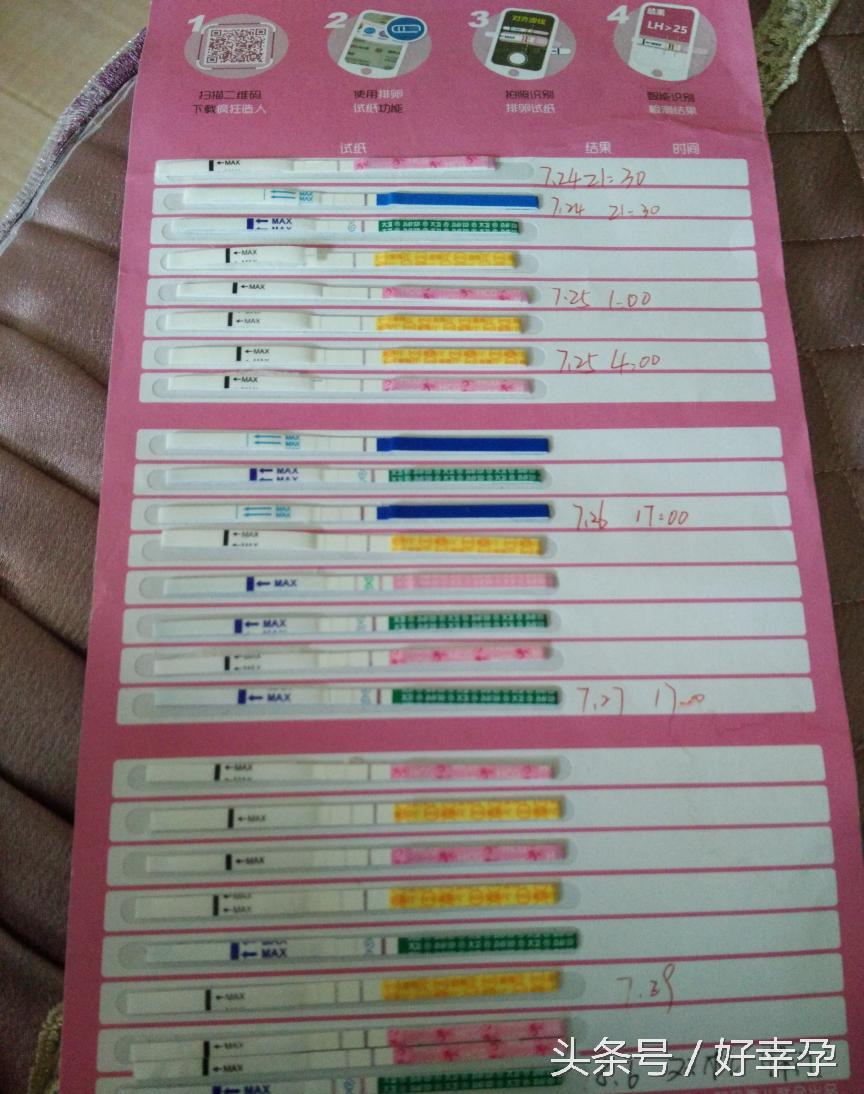 1 2 3 4
对齐虚线
结果
LH>25
扫描二维码
下载疯狂造人
使用排卵
试纸功能
拍照识别
排卵试纸
智能识别
检测结果
试纸 结果 时间
←MAX 7.24 21:30
MAX
MAX
7.24 21-30
← MAX
← MAX
←MAX
←MAX
←MAX 7.25 1-00
←MAX
←MAX 7.25 4:00
←MAX
MAX
MAX
← MAX
← MAX
MAX
MAX
7.26 17:00
←MAX
← MAX
← MAX
←MAX
←MAX
← MAX 7.27 17-00
←MAX
←MAX
←MAX
←MAX
←MAX
←MAX
← MAX
←MAX
←MAX
←MAX
← MAX
头条号 / 好幸孕